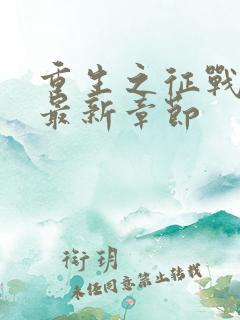 重生之征戰
最新章節
衔玥
未经同意禁止转载